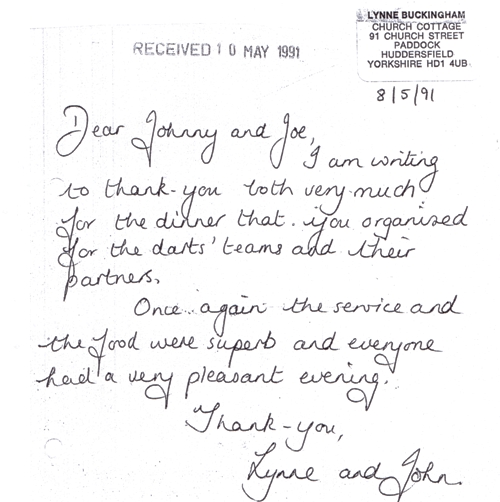 LYNNE BUCKINGHAM
CHURCH COTTAGE
91 CHURCH STREET
PADDOCK
HUDDERSFIELD
YORKSHIRE HD1 4UB
RECEIVED 10 MAY 1991
8/5/91
Dear Johnny and Joe,
I am writing
to thank-you both very much
for the dinner that you organised
for the darts' teams and their
partners.
Once again the service and
the food were superb and everyone
had a very pleasant evening.
Thank-you,
Lynne and John.